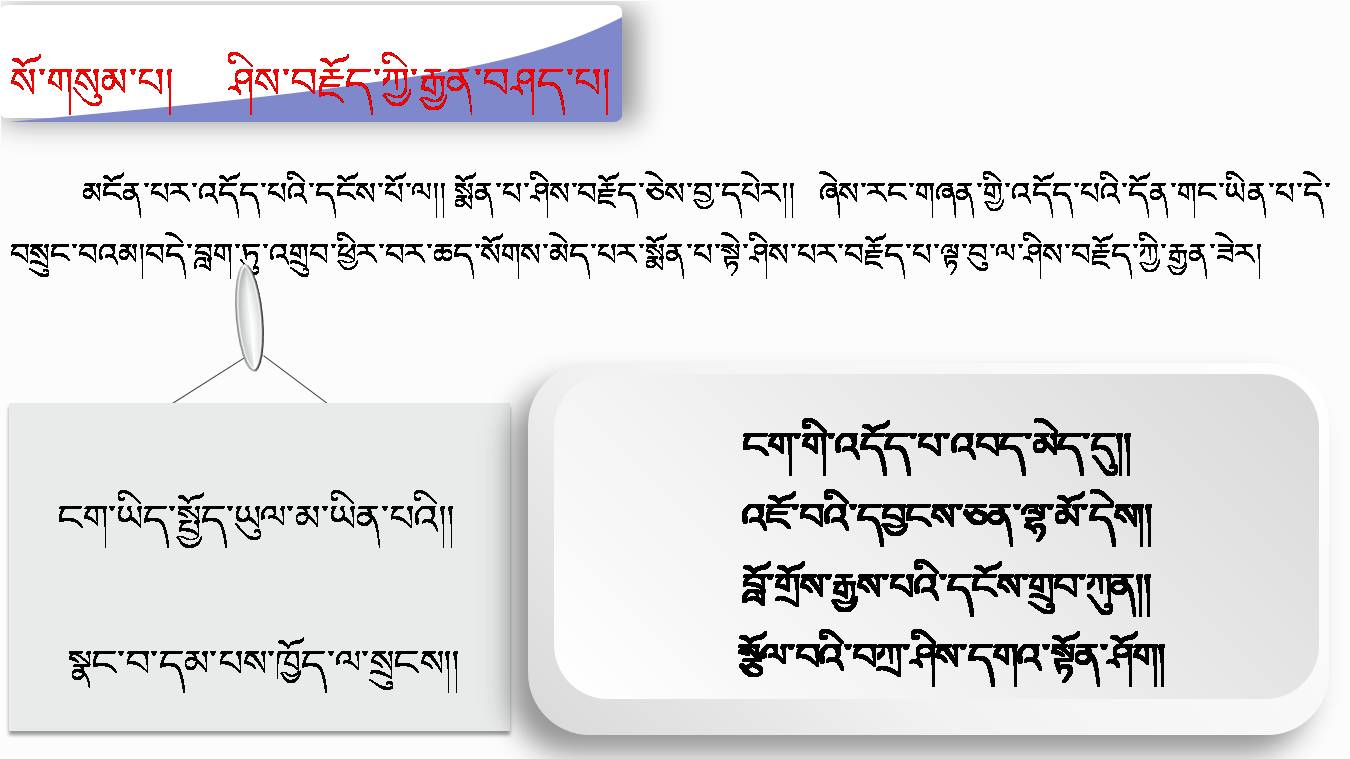 སོ་གསུམ་པ། ཤིས་བརྗོད་ཀྱི་རྒྱན་བཤད་པ།
མངོན་པར་འདོད་པའི་དངོས་པོ་ལ།། སྨོན་པ་ཤིས་བརྗོད་ཅེས་བྱ་དཔེར།། ཞེས་རང་གཞན་གྱི་འདོད་པའི་དོན་གང་ཡིན་པ་དེ་
བསྲུང་བའམ།བདེ་བླག་ཏུ་འགྲུབ་ཕྱིར་བར་ཆད་སོགས་མེད་པར་སྨོན་པ་སྟེ་ཤིས་པར་བརྗོད་པ་ལྟ་བུ་ལ་ཤིས་བརྗོད་ཀྱི་རྒྱན་ཟེར།
ངག་ཡིད་སྤྱོད་ཡུལ་མ་ཡིན་པའི།།
སྣང་བ་དམ་པས་ཁྱོད་ལ་སྲུངས།།
ངག་གི་འདོད་པ་འབད་མེད་དུ།།
འཇོ་བའི་དབྱངས་ཅན་ལྷ་མོ་དེས།།
བློ་གྲོས་རྒྱས་པའི་དངོས་གྲུབ་ཀུན།།
སྩོལ་བའི་བཀྲ་ཤིས་དགའ་སྟོན་ཤོག།